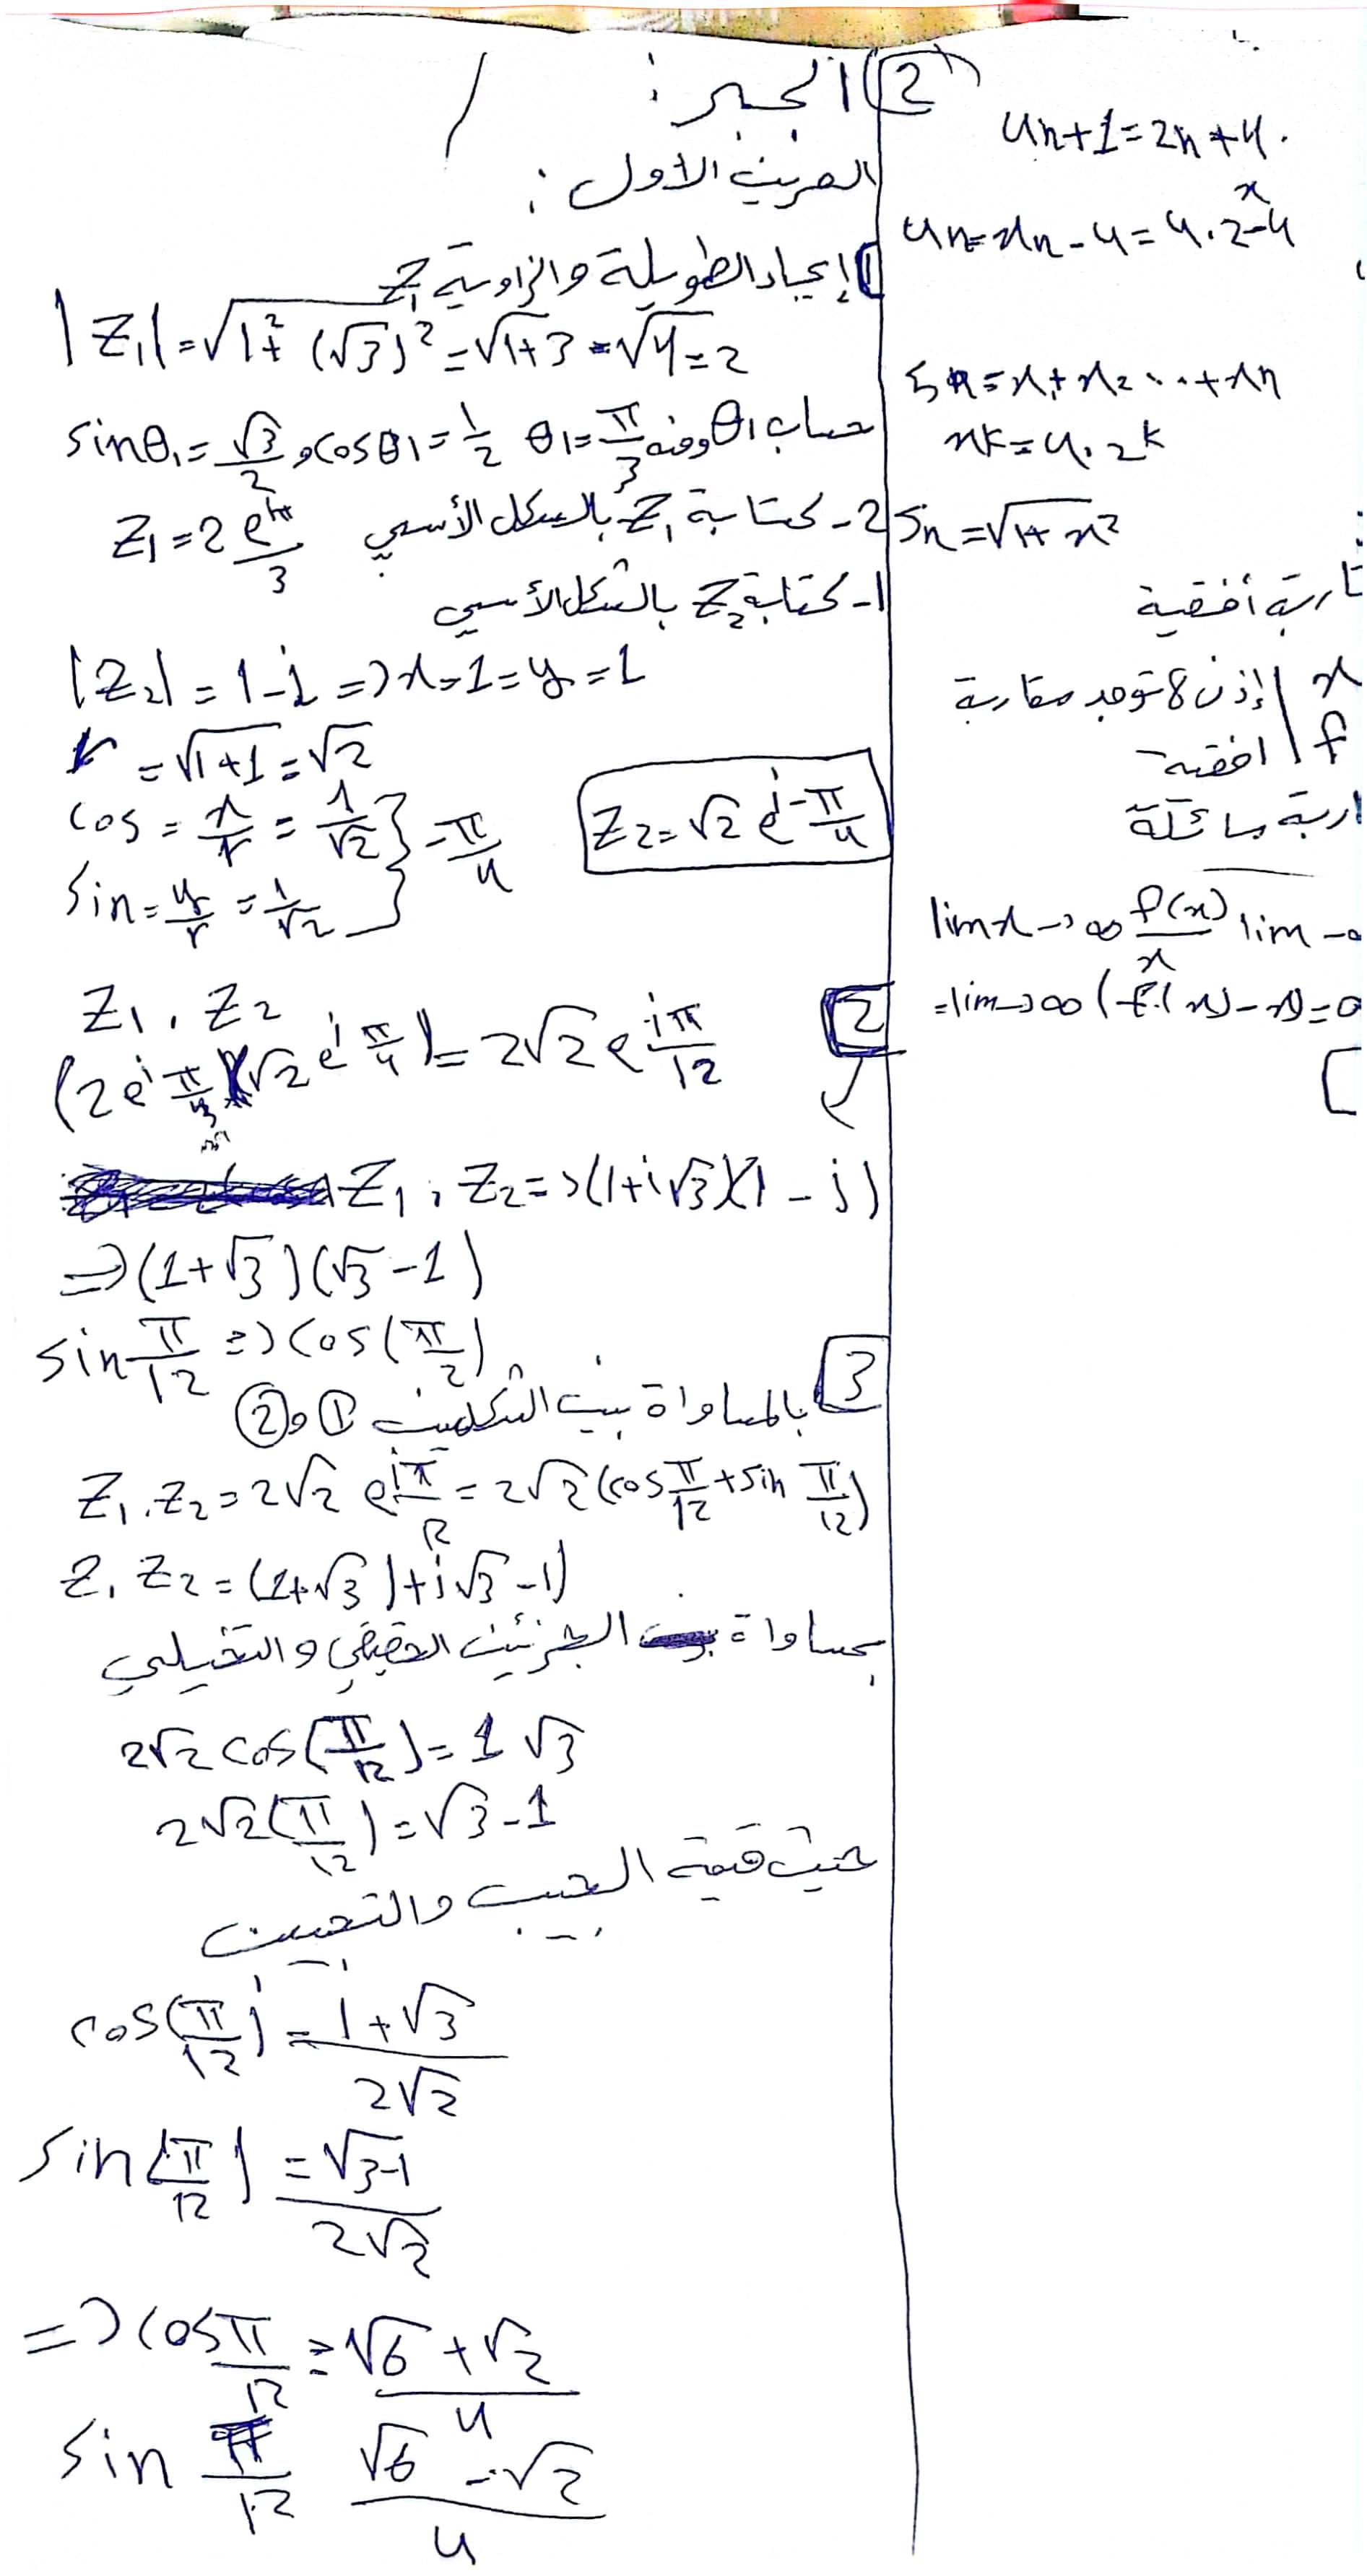 الجبر :
التمرين الأول :
1 إيجاد الطويلة والزاوية Z₁
|Z₁| = √1² + (√3)² = √1+3 = √4 = 2
حساب θ₁ ومنه θ₁ = π/3 sinθ₁ = √3/2 و cosθ₁ = 1/2
2 - كتابة Z₁ بالشكل الأسي Z₁ = 2 e^iπ/3
1 - كتابة Z₂ بالشكل الأسي
|Z₂| = 1 - i => x = 1 = y = 1
r = √1+1 = √2
cos = x/r = 1/√2 } -π/4
sin = y/r = 1/√2 }
Z₂ = √2 e^i-π/4
2
Z₁ . Z₂
(2e^i π/3)(√2 e^i π/4) = 2√2 e^iπ/12
Z₁ . Z₂ => (1+i√3)(1-i)
=> (1+√3)(√3-1)
sin π/12 => cos(π/2)
3 بالمساواة بين الشكلين ① و ②
Z₁ . Z₂ = 2√2 e^iπ/12 = 2√2 (cos π/12 + sin π/12)
Z₁ Z₂ = (1+√3) + i√3 - 1)
بمساواة الجزئين الحقيقي والتخيلي
2√2 cos(π/12) = 1 √3
2√2 (π/12) = √3 - 1
حيث قيمة الجيب والتجيب
cos(π/12) = 1+√3 / 2√2
sin(π/12) = √3-1 / 2√2
=> cos π/12 = √6 + √2 / 4
sin π/12 √6 - √2 / 4
2
un+1 = 2n + 4.
un = xn - 4 = 4 . 2^x - 4
Sn = x₁ + x₂ ... + xn
xk = 4 . 2^k
Sn = √1+x²
اربة أفقية
إذن لا توجد مقاربة x
افقية f
اربة مائلة
lim x→∞ f(x)/x lim →
= lim→∞ (f(x) - x) = 0